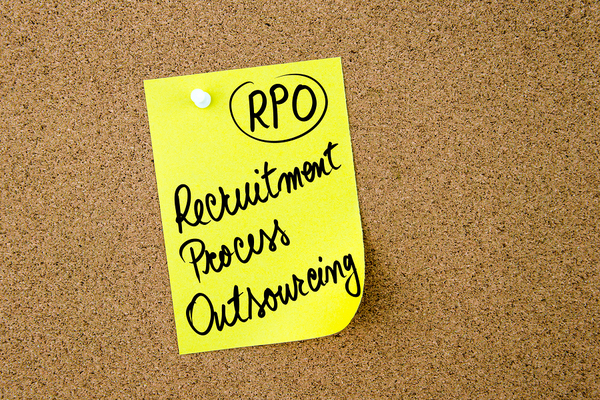 RPO
Recruitment
Process
Outsourcing